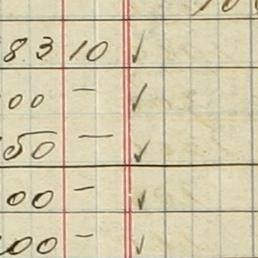 83 10 ✓
00 — ✓
50 — ✓
00 — ✓
00 — ✓